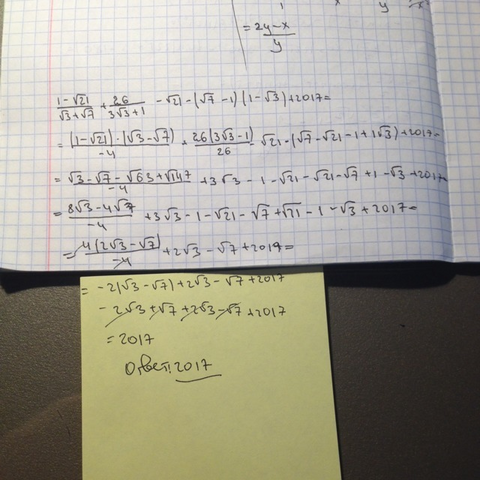 1 x y
= (2y-x)/y
(1-√21)/(√3+√7) + 26/(3√3+1) - √21 - (√7-1)(1-√3)+2017=
= (1-√21)·(√3-√7)/-4 + 26(3√3-1)/26 - √21 - (√7-√21-1+1√3)+2017=
= (√3-√7-√63+√147)/-4 + 3√3-1-√21-√21-√7+1-√3+2017
= (8√3-4√7)/-4 + 3√3-1-√21-√7+√21-1-√3+2017=
= 4(2√3-√7)/-4 + 2√3-√7+2017=
= -2(√3-√7)+2√3-√7+2017
- 2√3+√7+2√3-√7+2017
= 2017
Ответ: 2017